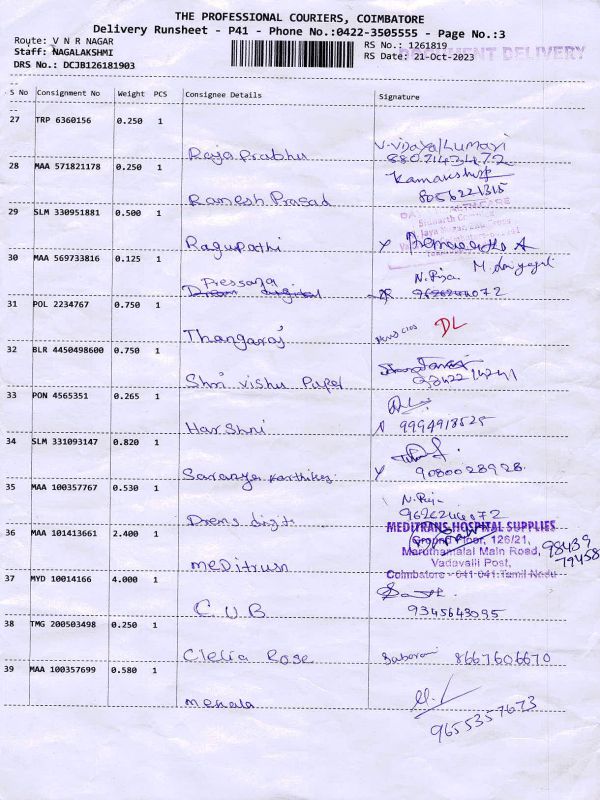 THE PROFESSIONAL COURIERS, COIMBATORE
Delivery Runsheet - P41 - Phone No.:0422-3505555 - Page No.:3
Route: V N R NAGAR
RS No.: 1261819
DELIVERY
Staff: NAGALAKSHMI
RS Date: 21-Oct-2023
DRS No.: DCJB126181903
S No Consignment No Weight PCS Consignee Details Signature
27 TRP 6360156 0.250 1
Raja Prabhu
8807143472
28 MAA 571821178 0.250 1
Ramesh Prasad
8056221315
29 SLM 330951881 0.500 1
Ragupathi
30 MAA 569733816 0.125 1
Pressana
N. Riya
31 POL 2234767 0.750 1
Thangaraj
DL
32 BLR 4450498600 0.750 1
Shri vishu Paper
33 PON 4565351 0.265 1
Harshni
9994918525
34 SLM 331093147 0.820 1
Saranya Karthikey
9080028928
35 MAA 100357767 0.530 1
Drems digit
N. Riya
9626244072
36 MAA 101413661 2.400 1
meditrusn
MEDITRANS HOSPITAL SUPPLIES
Ground Floor, 126/21,
Maruthamalai Main Road,
Vadavalli Post,
Coimbatore - 641 041.Tamil Nadu
98439
79458
37 MYD 10014166 4.000 1
C U B
9345643095
38 TMG 200503498 0.250 1
Clelia Rose
8667606670
39 MAA 100357699 0.580 1
mekala
9655357673